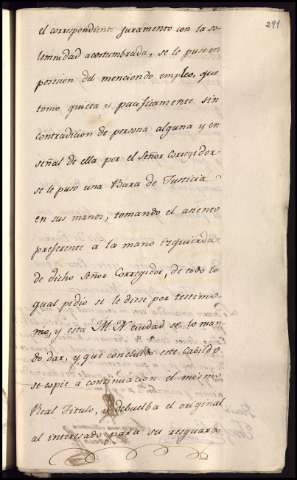 291
el correspondiente juramento con la so-
lemnidad acostumbrada, se le puso en
posesion del mencionado empleo, que
tomo quieta y pacificamente sin
contradicion de persona alguna y en
señal de ella por el Señor Corregidor
se le puso una Bara de Justicia
en sus manos, tomando el asiento
preferente a la mano izquierda
de dicho Señor Corregidor, de todo lo
qual pidio se le diese por testimo-
nio, y esta M. N. ciudad se lo man-
do dar, y que concluido este Cabildo
se copie a continuacion el mismo
Real Titulo, y debuelba el original
al interesado para su resguardo